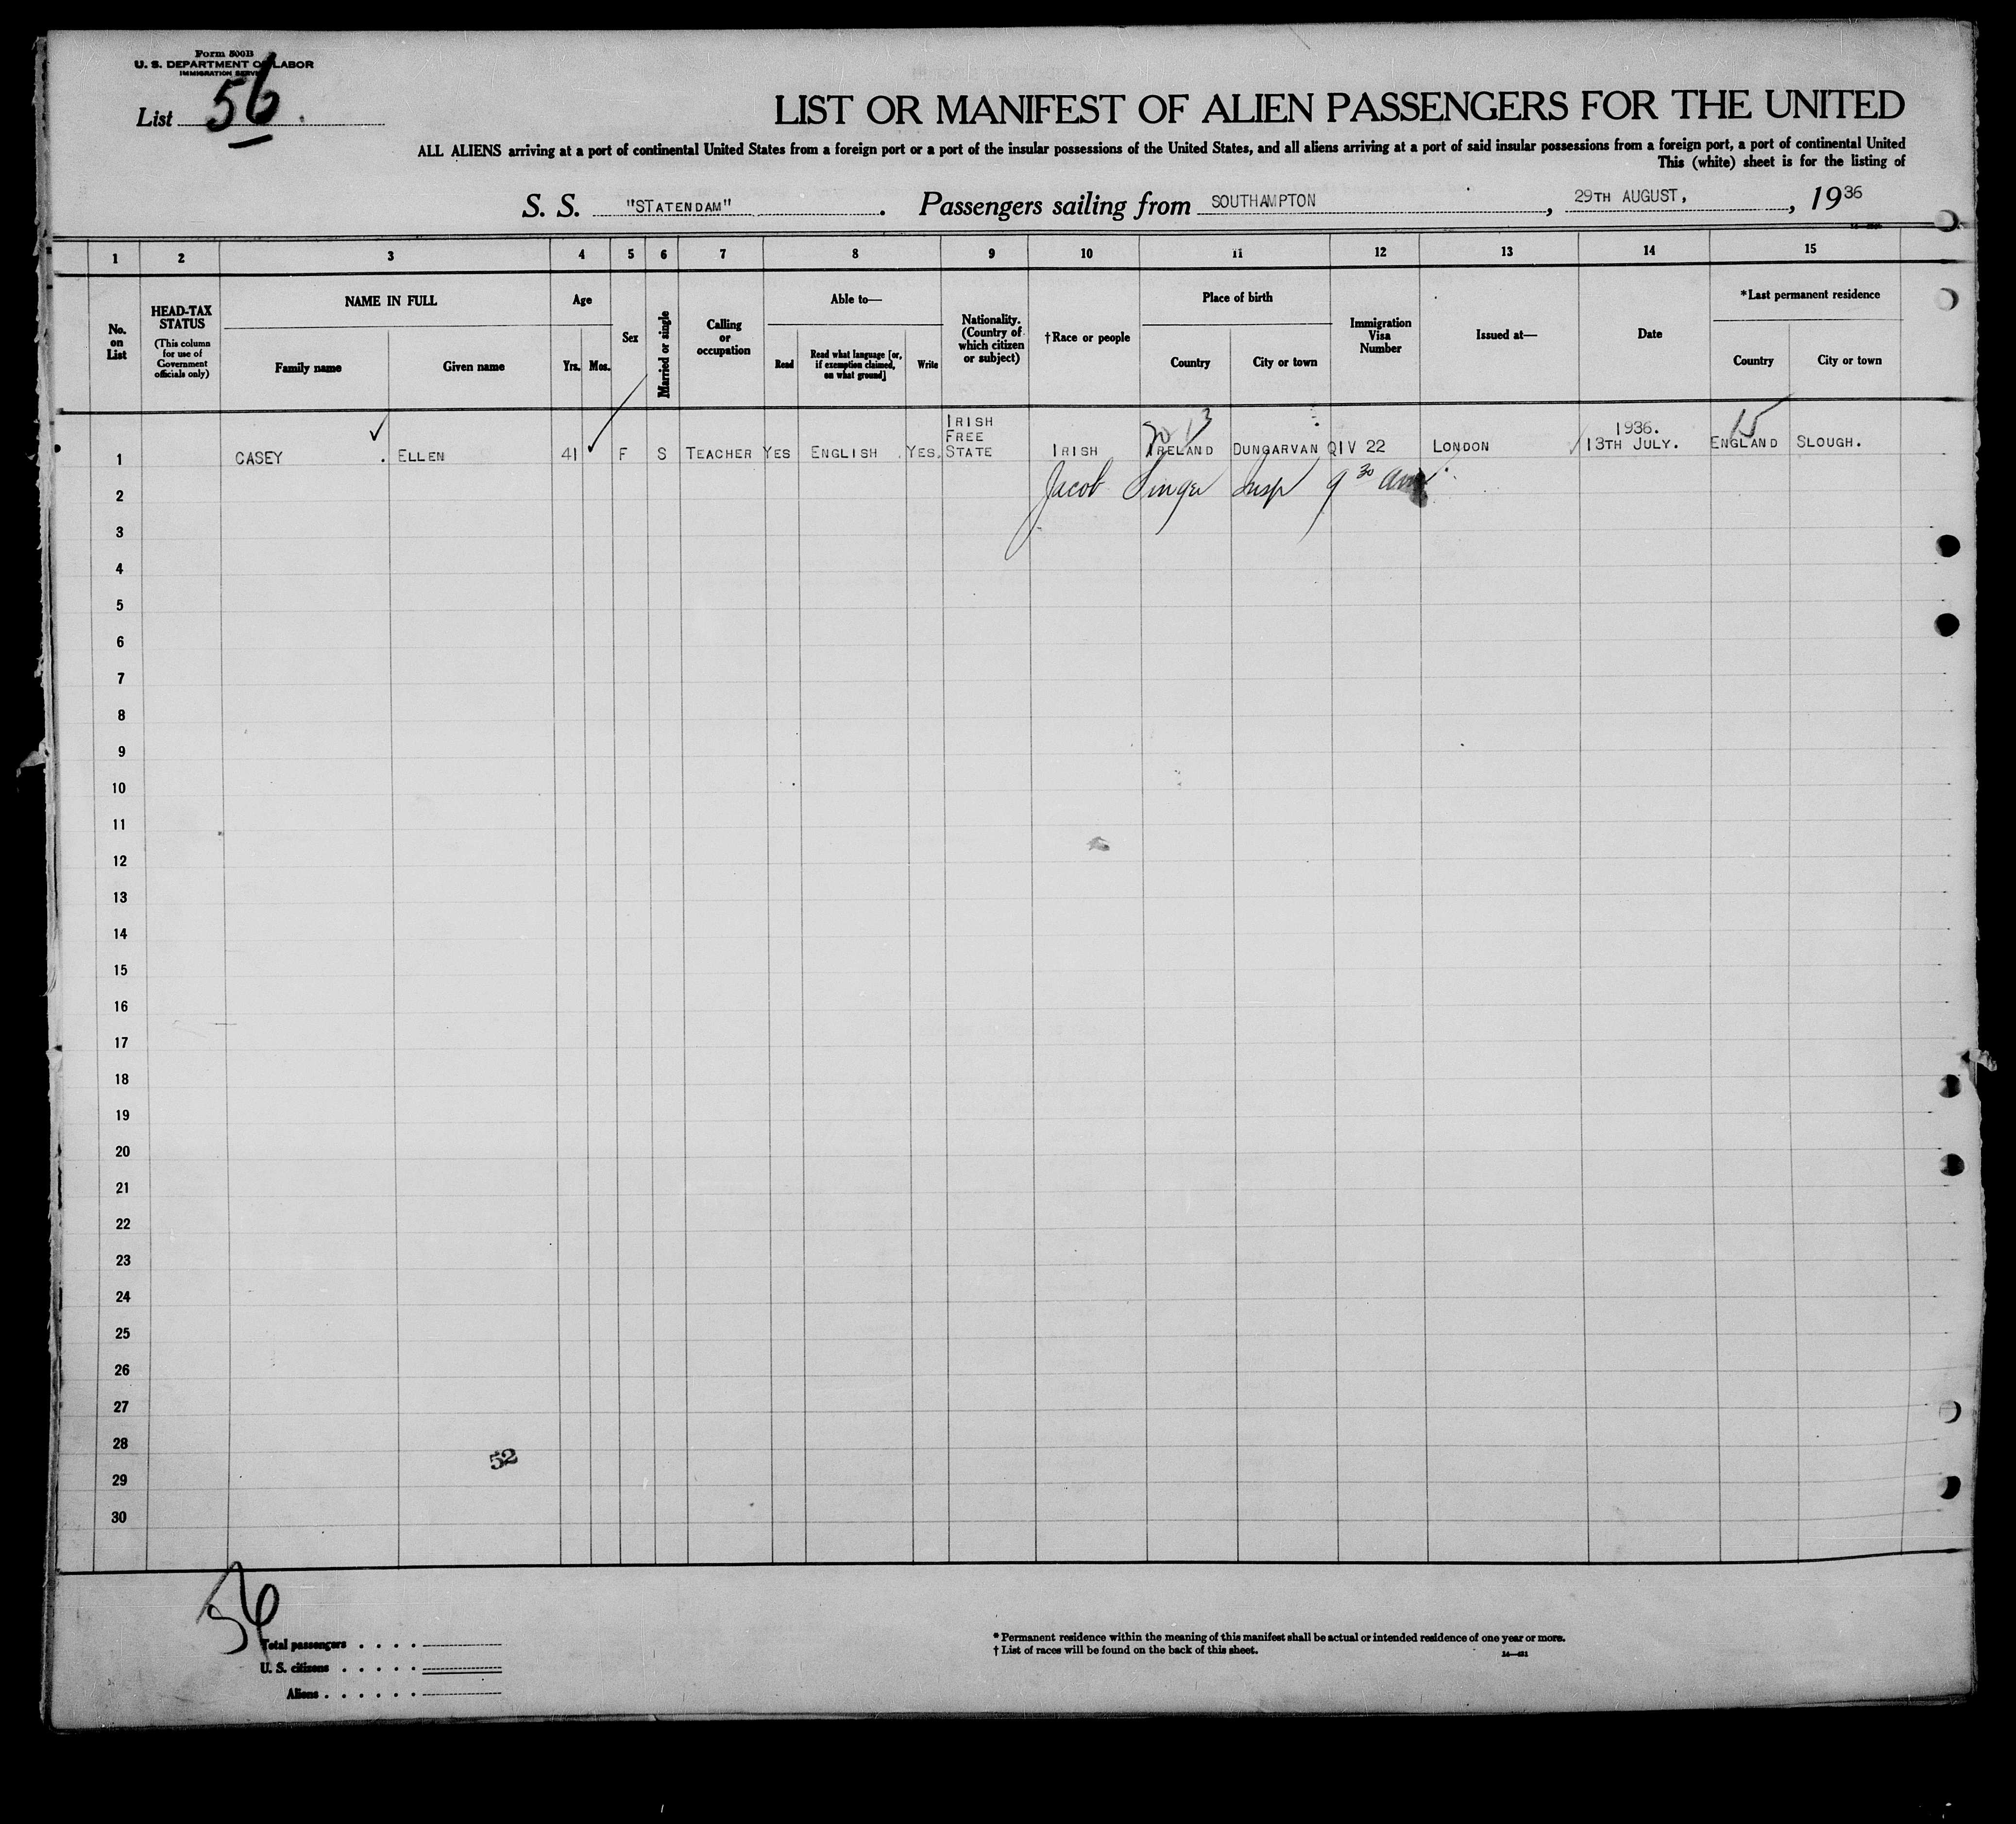 Form 500B
U. S. DEPARTMENT OF LABOR
IMMIGRATION SERVICE
List 56
LIST OR MANIFEST OF ALIEN PASSENGERS FOR THE UNITED
ALL ALIENS arriving at a port of continental United States from a foreign port or a port of the insular possessions of the United States, and all aliens arriving at a port of said insular possessions from a foreign port, a port of continental United
This (white) sheet is for the listing of
S. S. "STATENDAM" . Passengers sailing from SOUTHAMPTON , 29TH AUGUST, , 1936
1 2 3 4 5 6 7 8 9 10 11 12 13 14 15
No. on List
HEAD-TAX STATUS
(This column for use of Government officials only)
NAME IN FULL
Family name
Given name
Age
Yrs.
Mos.
Sex
Married or single
Calling or occupation
Able to—
Read
Read what language [or, if exemption claimed, on what ground]
Write
Nationality. (Country of which citizen or subject)
†Race or people
Place of birth
Country
City or town
Immigration Visa Number
Issued at—
Date
*Last permanent residence
Country
City or town
1 CASEY . ELLEN 41 F S TEACHER YES ENGLISH YES. IRISH FREE STATE IRISH IRELAND DUNGARVAN QIV 22 LONDON 1936. 13TH JULY. ENGLAND SLOUGH.
15
2 Jacob Singer Insp 9 30 am
3
4
5
6
7
8
9
10
11
12
13
14
15
16
17
18
19
20
21
22
23
24
25
26
27
28
52
29
30
56
Total passengers . . . .
U. S. citizens . . . . .
Aliens . . . . . .
* Permanent residence within the meaning of this manifest shall be actual or intended residence of one year or more.
† List of races will be found on the back of this sheet.